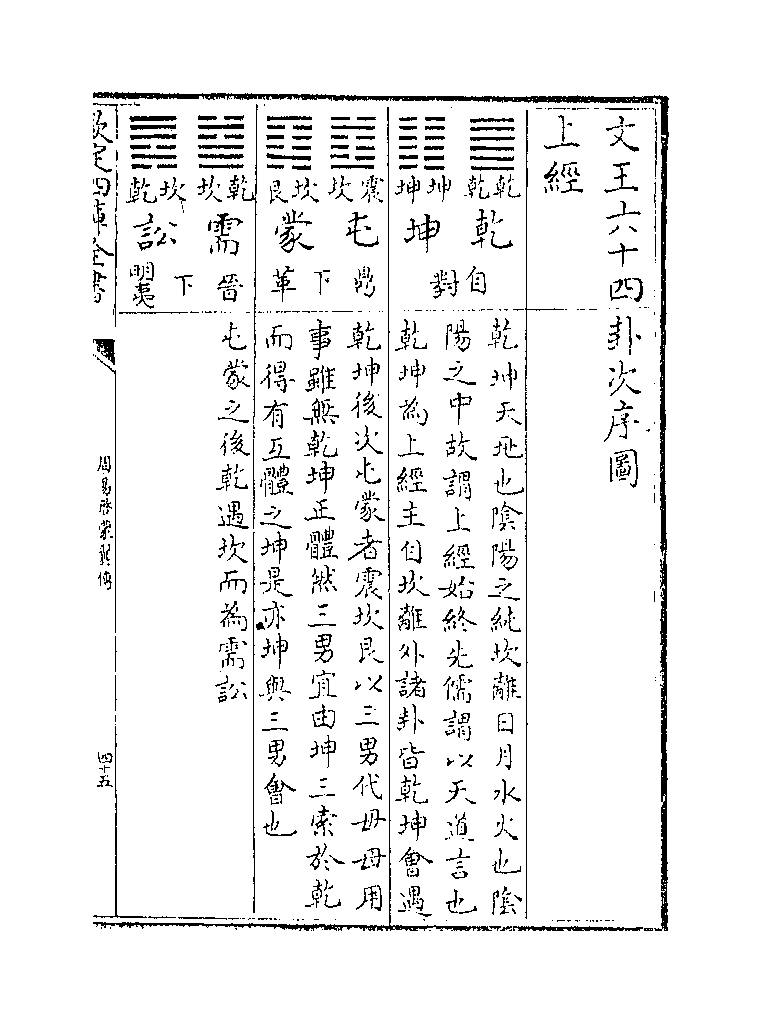 文王六十四卦次序圖
上經
乾乾 乾
坤坤 坤
自對
乾坤天地也陰陽之純坎離日月水火也陰
陽之中故謂上經始終先儒謂以天道言也
乾坤為上經主自坎離外諸卦皆乾坤會遇
震坎 屯 鼎
坎艮 蒙 革
下
乾坤後次屯蒙者震坎艮以三男代母母用
事雖無乾坤正體然三男宜由坤三索於乾
而得有互體之坤是亦坤與三男會也
乾坎 需 晉
坎乾 訟 明夷
下
屯蒙之後乾遇坎而為需訟
欽定四庫全書
周易啓蒙翼傳
四十五